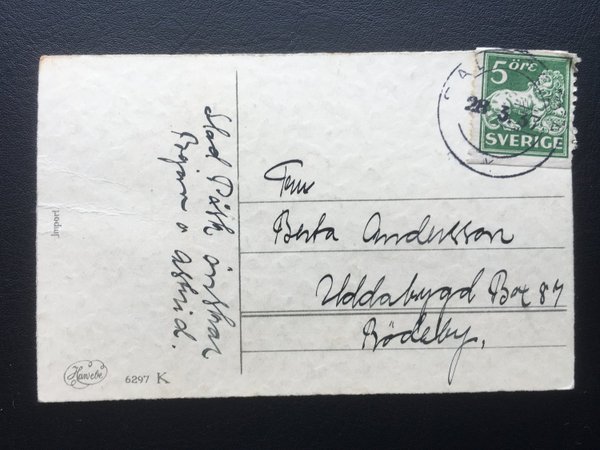 Glad Påsk önskar
Början o Astrid.
Import
Hawebe
6297 K
28 3 37
5 ÖRE
SVERIGE
Fru
Berta Andersson
Uddabygd Box 87
Rödeby.